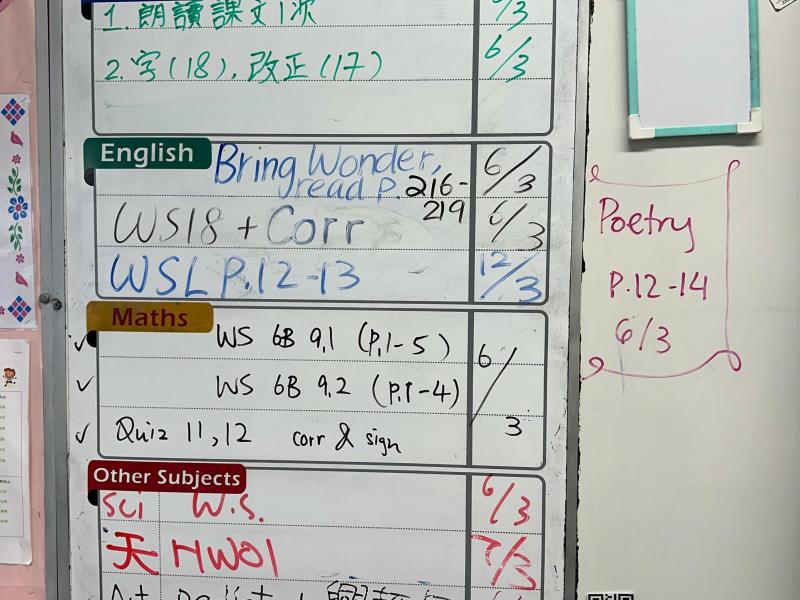 1. 朗讀課文1次 6/3
2. 字(18), 改正(17) 6/3
English
Bring Wonder, 6/3
read p. 216-
219
WS18 + Corr 6/3
WSL P.12-13 12/3
Maths
✓ WS 6B 9.1 (P.1-5) 6/3
✓ WS 6B 9.2 (P.1-4)
✓ Quiz 11, 12 corr & sign
Other Subjects
Sci W.S. 6/3
天 HW01 7/3
Poetry
P.12-14
6/3